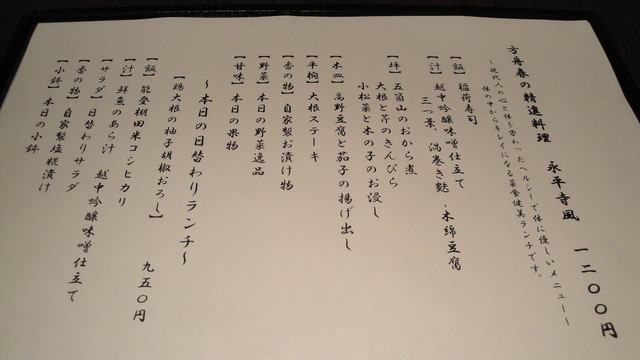 方舟春の精進料理 永平寺風 一二〇〇円
～現代人の心と体を労わったヘルシーで体に優しいメニュー～
体の中からキレイになる菜食健美ランチです。
【飯】稲荷寿司
【汁】越中吟醸味噌仕立て
三つ葉、渦巻き麩、木綿豆腐
【坪】五箇山のおから煮
大根と芹のきんぴら
小松菜と木の子のお浸し
【木皿】高野豆腐と茄子の揚げ出し
【平椀】大根ステーキ
【香の物】自家製お漬け物
【野菜】本日の野菜逸品
【甘味】本日の果物
～本日の日替わりランチ～
【鶏大根の柚子胡椒おろし】 九五〇円
【飯】能登棚田米コシヒカリ
【汁】鮮魚のあら汁
【サラダ】日替わりサラダ 越中吟醸味噌仕立て
【香の物】自家製塩糀漬け
【小鉢】本日の小鉢